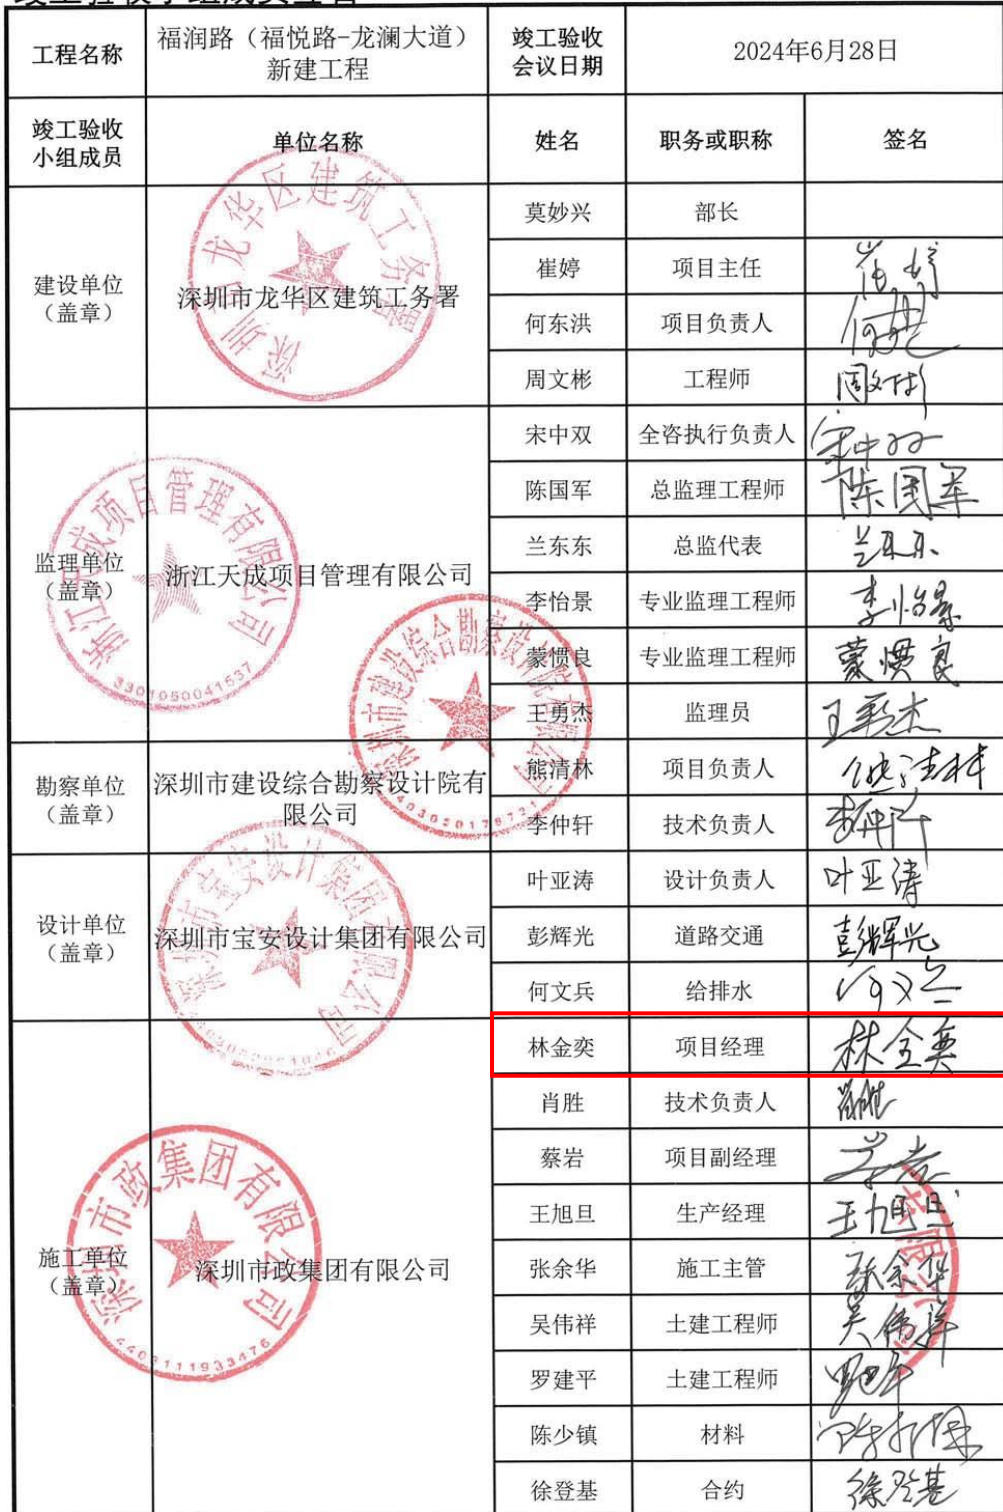 工程名称 福润路（福悦路-龙澜大道）新建工程 竣工验收会议日期 2024年6月28日
竣工验收小组成员 单位名称 姓名 职务或职称 签名
建设单位（盖章） 深圳市龙华区建筑工务署
莫妙兴 部长
崔婷 项目主任
何东洪 项目负责人
周文彬 工程师 周文彬
监理单位（盖章） 浙江天成项目管理有限公司
宋中双 全咨执行负责人 宋中双
陈国军 总监理工程师 陈国军
兰东东 总监代表 兰东东
李怡景 专业监理工程师 李怡景
蒙惯良 专业监理工程师 蒙惯良
王勇杰 监理员 王勇杰
勘察单位（盖章） 深圳市建设综合勘察设计院有限公司
熊清林 项目负责人 熊清林
李仲轩 技术负责人
设计单位（盖章） 深圳市宝安设计集团有限公司
叶亚涛 设计负责人 叶亚涛
彭辉光 道路交通 彭辉光
何文兵 给排水 何文兵
施工单位（盖章） 深圳市政集团有限公司
林金奕 项目经理 林金奕
肖胜 技术负责人 肖胜
蔡岩 项目副经理
王旭旦 生产经理 王旭旦
张余华 施工主管 张余华
吴伟祥 土建工程师 吴伟祥
罗建平 土建工程师
陈少镇 材料
徐登基 合约 徐登基
深圳市龙华区建筑工务署
浙江天成项目管理有限公司
3301050041537
深圳市建设综合勘察设计院有限公司
深圳市宝安设计集团有限公司
深圳市政集团有限公司
4403111933476
有限公司